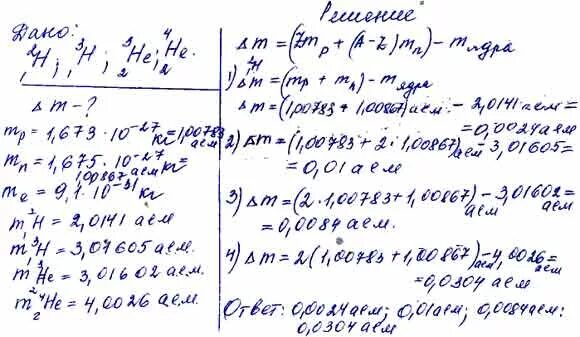 Дано:
²₁H; ³₁H; ³₂He; ⁴₂He.
Δm - ?
mp = 1,673 · 10⁻²⁷ кг = 1,00783 аем
mn = 1,675 · 10⁻²⁷ кг = 1,00867 аем
me = 9,1 · 10⁻³¹ кг
m²₁H = 2,0141 аем
m³₁H = 3,01605 аем.
m³₂He = 3,01602 аем.
m⁴₂He = 4,0026 аем.
Решение
Δm = (Zmp + (A-Z)mn) - mядра
²₁H
1) Δm = (mp + mn) - mядра
Δm = (1,00783 + 1,00867) аем - 2,0141 аем =
= 0,0024 аем
2) Δm = (1,00783 + 2 · 1,00867) аем - 3,01605 =
= 0,01 аем
3) Δm = (2 · 1,00783 + 1,00867) аем - 3,01602 аем =
= 0,0084 аем.
4) Δm = 2(1,00783 + 1,00867) аем - 4,0026 аем =
= 0,0304 аем
Ответ: 0,0024 аем; 0,01 аем; 0,0084 аем;
0,0304 аем